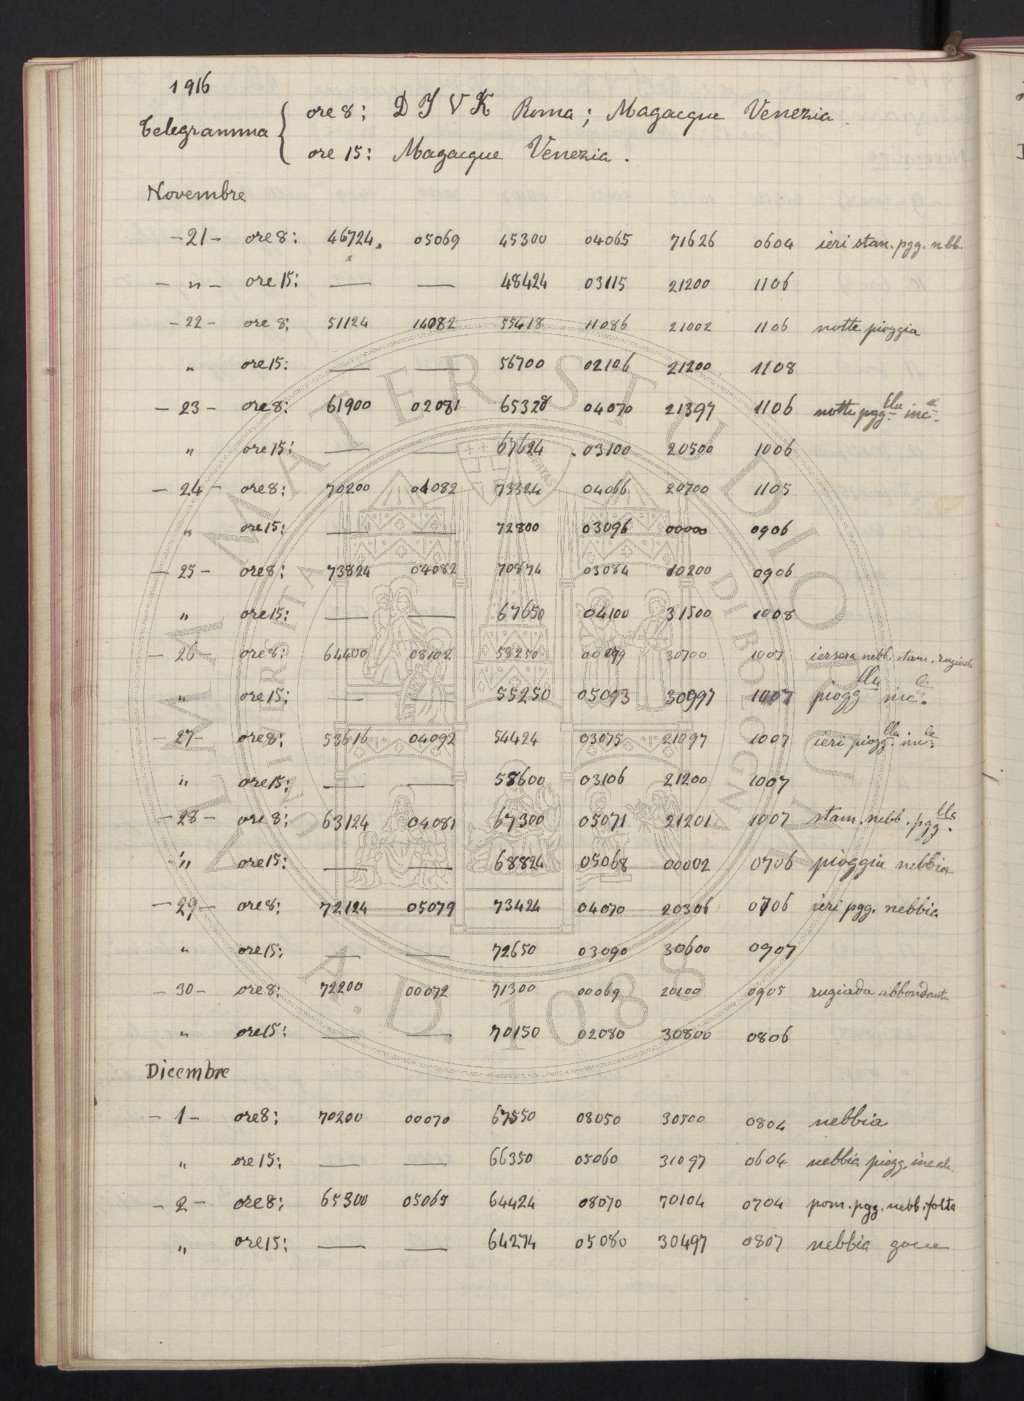 1916
Telegramma { ore 8: D I V K Roma; Magacque Venezia.
ore 15: Magacque Venezia.
Novembre
-21- ore 8: 46724 05069 45300 04065 71626 0604 ieri stam. pgg. nbb.
- " - ore 15: — — 48424 03115 21200 1106
-22- ore 8: 51124 14082 55418 11086 21002 1106 notte pioggia
" ore 15: — — 56700 02106 21200 1108
-23- ore 8: 61900 02081 65328 04070 21397 1106 notte pgg. bla inc. le
" ore 15: — — 67624 03100 20500 1006
-24- ore 8: 70200 04082 73324 04066 20700 1105
" ore 15: — — 72800 03096 00000 0906
-25- ore 8: 73824 04082 70874 03084 10200 0906
" ore 15: — — 67650 04100 31500 1008
-26- ore 8: 64400 08102 58250 00099 30700 1007 iersera nebb. stam. rugiada
" ore 15: — — 55250 05093 30997 1007 piogg lla inc. le
-27- ore 8: 53616 04092 54424 03075 21097 1007 ieri piogg. lla inc. le
" ore 15: — — 58600 03106 21200 1007
-28- ore 8: 63124 04081 67300 05071 21201 1007 stam. nebb. pgg. bla
" ore 15: — — 68824 05068 00002 0706 pioggia nebbia
-29- ore 8: 72124 05079 73424 04070 20306 0706 ieri pgg. nebbia
" ore 15: — — 72650 03090 30600 0907
-30- ore 8: 72200 00072 71300 00069 20100 0905 rugiada abbondant
" ore 15: — — 70150 02080 30800 0806
Dicembre
-1- ore 8: 70200 00070 67550 08050 30500 0804 nebbia
" ore 15: — — 66350 05060 31097 0604 nebbia piogg. incal.
-2- ore 8: 65300 05065 64424 08070 70104 0704 pom. pgg. nebb. folta
" ore 15: — — 64274 05080 30497 0807 nebbia gocce
ALMA MATER STUDIORUM
UNIVERSITÀ DI BOLOGNA
A.D. 1088